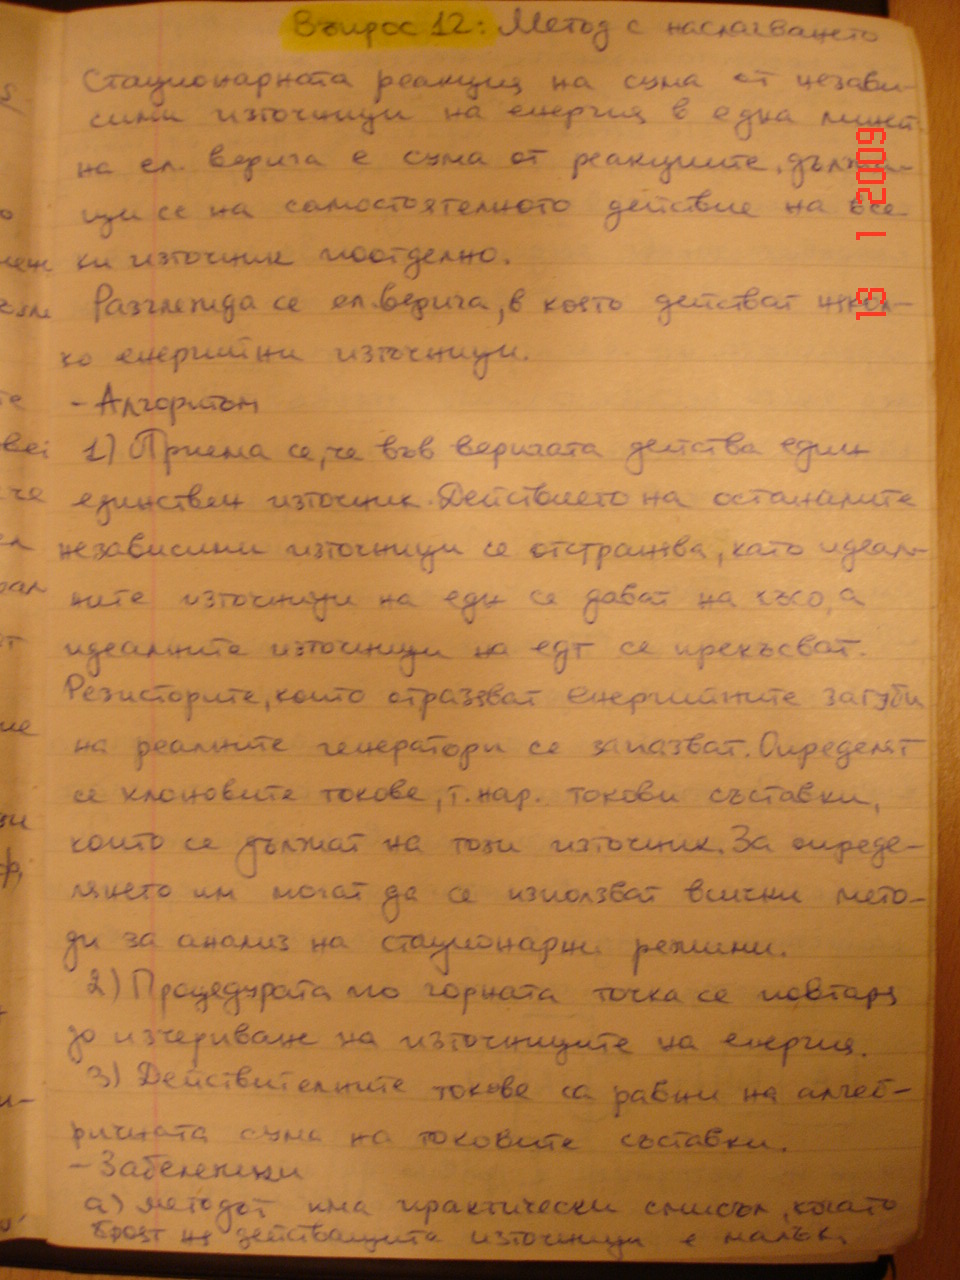 Въпрос 12: Метод с наслагването
Стационарната реакция на сума от незави-
сими източници на енергия в една линей
на ел. верига е сума от реакциите, дължа-
щи се на самостоятелното действие на все-
ки източник поотделно.
Разглежда се ел.верига, в която действат някол-
ко енергийни източници.
- Алгоритъм
1) Приема се, че във веригата действа един
единствен източник. Действието на останалите
независими източници се отстранява, като идеал-
ните източници на едн се дават на късо, а
идеалните източници на едт се прекъсват.
Резисторите, които отразяват енергийните загуби
на реалните генератори се запазват. Определят
се клоновите токове, т.нар. токови съставки,
които се дължат на този източник. За опреде-
лянето им могат да се използват всички мето-
ди за анализ на стационарни режими.
2) Процедурата по горната точка се повтаря
до изчерпване на източниците на енергия.
3) Действителните токове са равни на алгеб-
ричната сума на токовите съставки.
- Забележки
а) методът има практически смисъл, когато
броят на действащите източници е малък.
13 1 2009